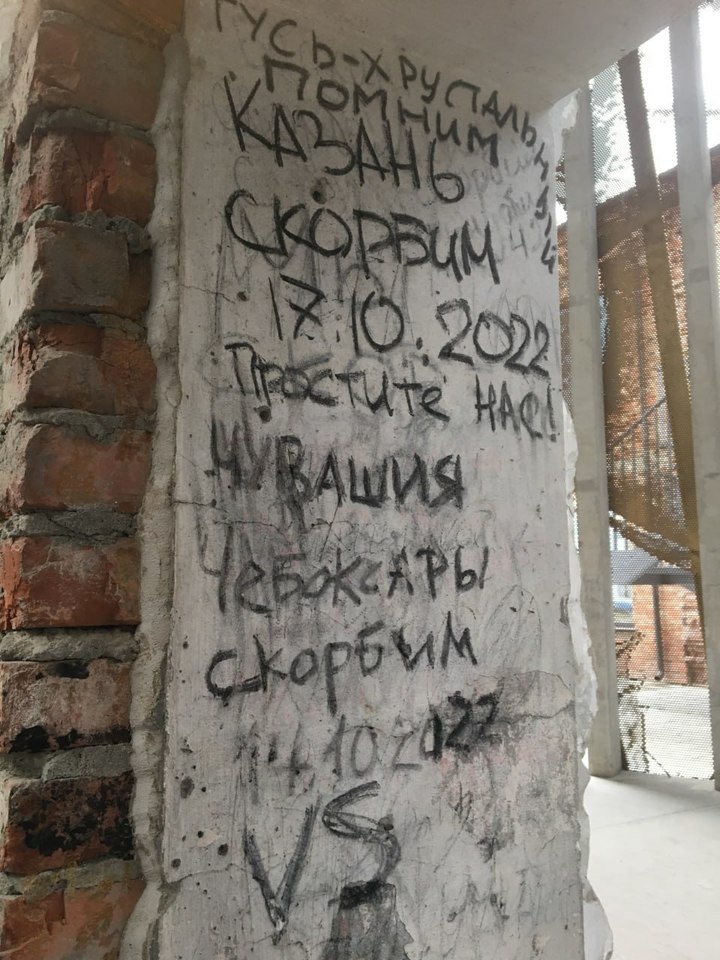 ГУСЬ-ХРУСТАЛЬНЫЙ
ПОМНИМ
КАЗАНЬ
СКОРБИМ
17.10.2022
Простите НАС!
ЧУВАШИЯ
ЧебоксАРЫ
скорбим
14.10.2022
VS